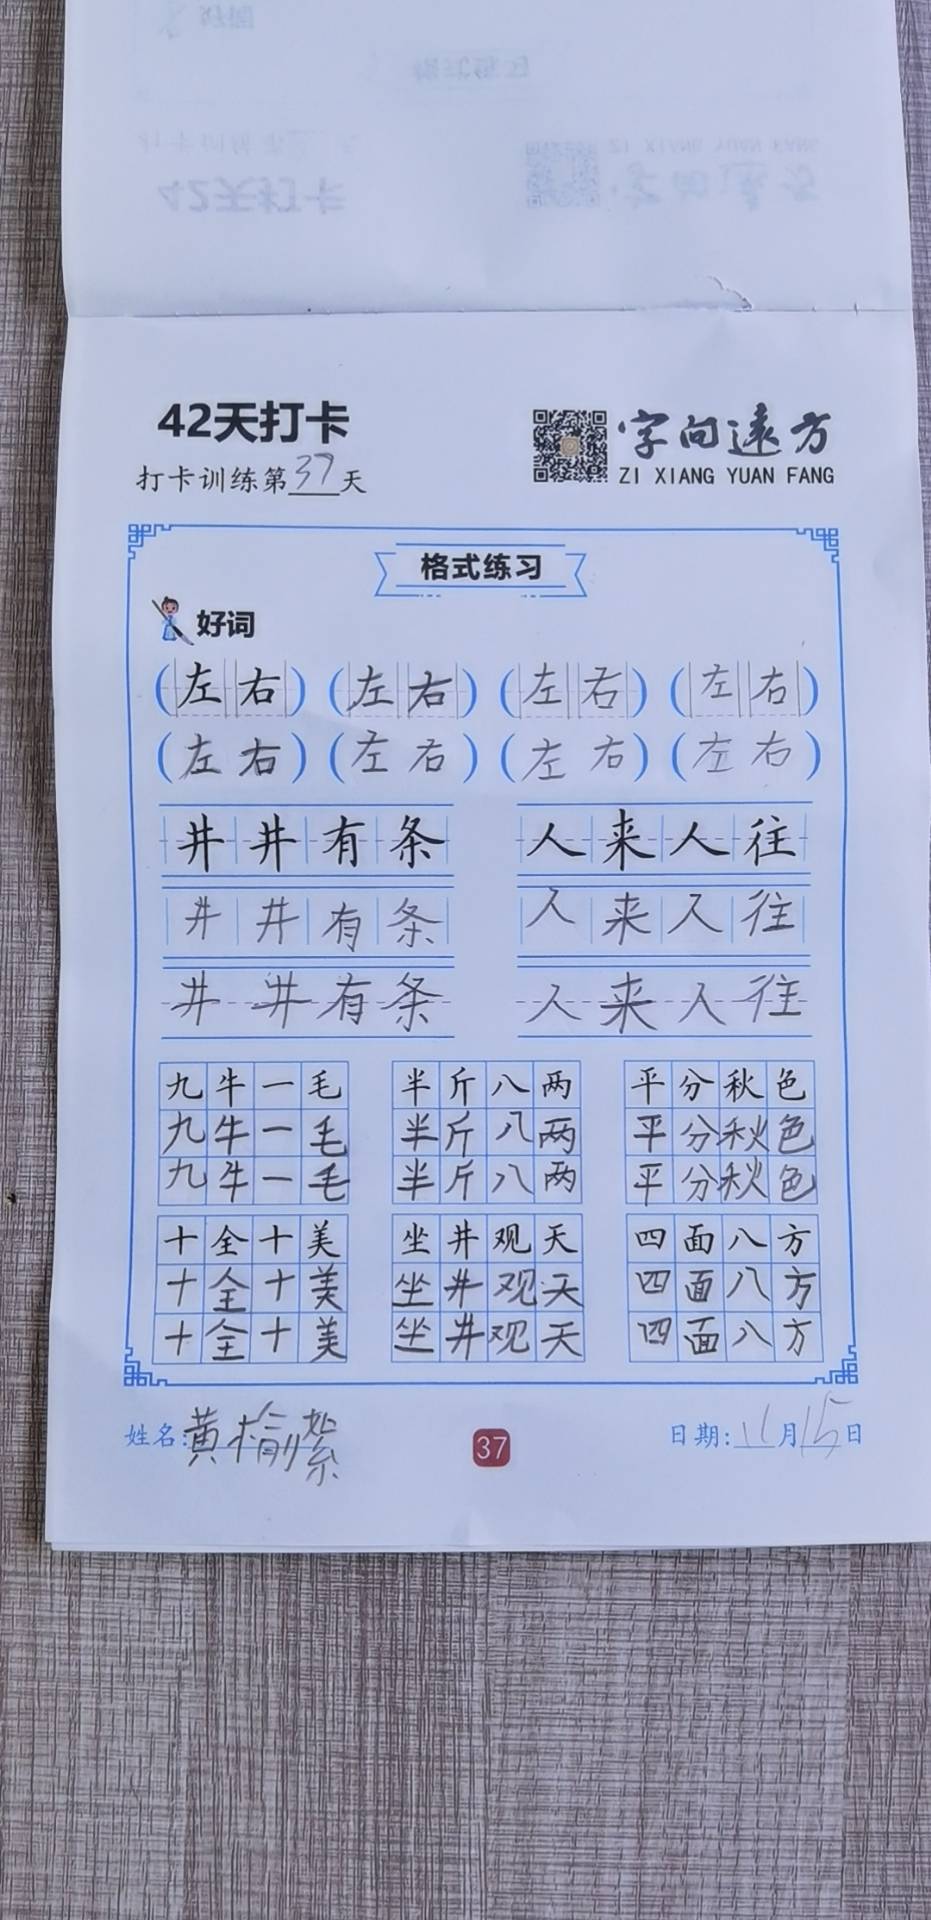 42天打卡
字向远方
打卡训练第37天
ZI XIANG YUAN FANG
格式练习
好词
(左右) (左右) (左右) (左右)
(左右) (左右) (左右) (左右)
井井有条 人来人往
井井有条 人来人往
井井有条 人来人往
九牛一毛 半斤八两 平分秋色
九牛一毛 半斤八两 平分秋色
九牛一毛 半斤八两 平分秋色
十全十美 坐井观天 四面八方
十全十美 坐井观天 四面八方
十全十美 坐井观天 四面八方
姓名:黄榆絮 37 日期:11月15日